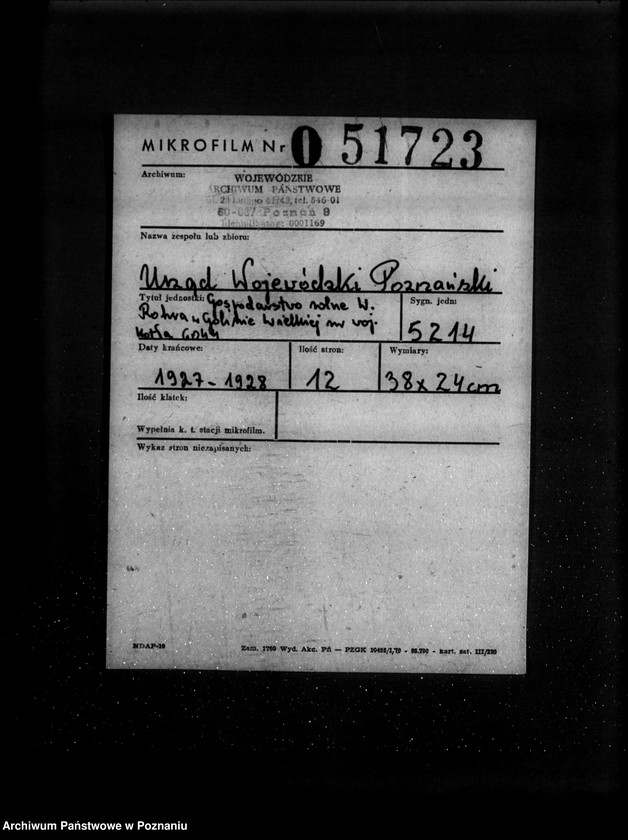 MIKROFILM Nr 0 51723
Archiwum:
WOJEWÓDZKIE
ARCHIWUM PAŃSTWOWE
tel. 546-01
60-967 Poznań 9
0001169
Nazwa zespołu lub zbioru:
Urząd Wojewódzki Poznański
Tytuł jednostki: Gospodarstwo rolne W.
w Golinie Wielkiej nr woj.
Sygn. jedn:
5214
Daty krańcowe:
1927-1928
Ilość stron:
12
Wymiary:
38x24cm
Ilość klatek:
Wypełnia k. t. stacji mikrofilm.
Wykaz stron niezapisanych:
NDAP-10
Zam. 1760 Wyd. Akc. Pń — PZGK kart. sat. III/220
Archiwum Państwowe w Poznaniu